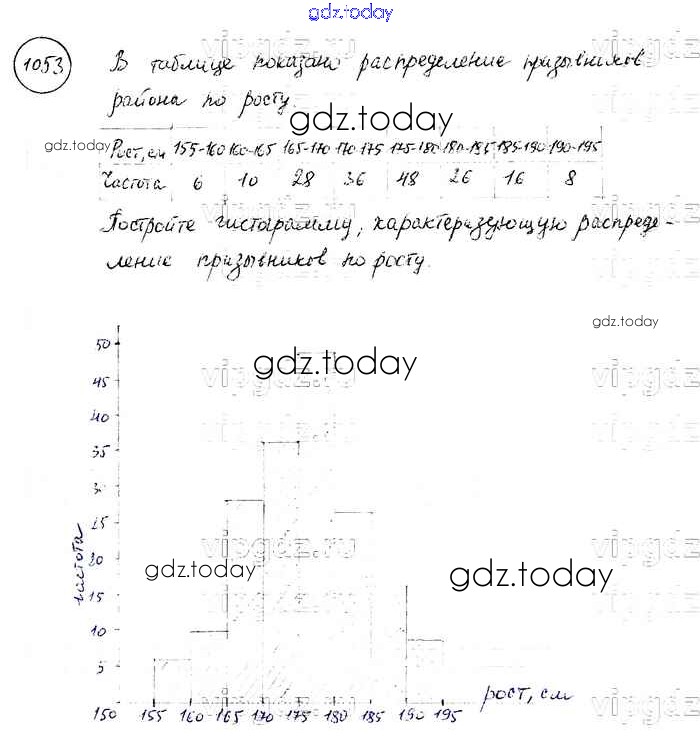 gdz.today
1053 В таблице показано распределение призывников
района по росту.
gdz.today
gdz.today
Рост, см 155-160 160-165 165-170 170-175 175-180 180-185 185-190 190-195
Частота 6 10 28 36 48 26 16 8
Постройте гистограмму, характеризующую распреде-
ление призывников по росту.
gdz.today
gdz.today
50
45
40
35
30
25
20
15
10
5
частота
gdz.today
gdz.today
vipgdz.ru
рост, см
150 155 160 165 170 175 180 185 190 195